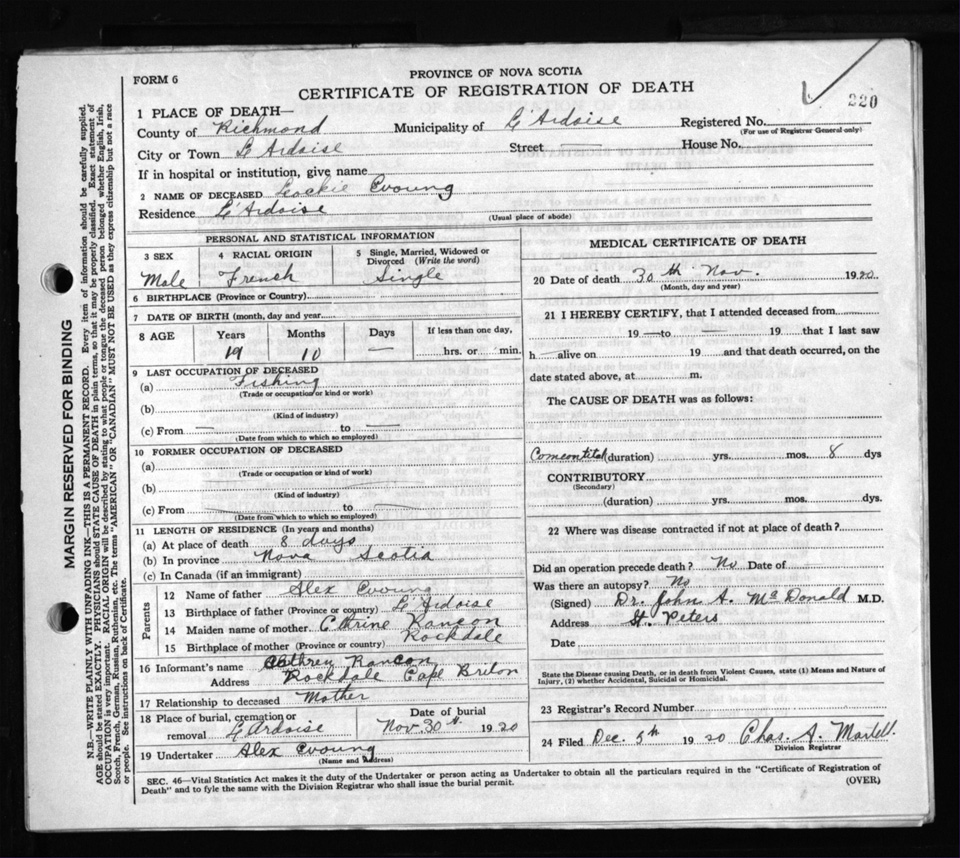 FORM 6
PROVINCE OF NOVA SCOTIA
CERTIFICATE OF REGISTRATION OF DEATH
220
MARGIN RESERVED FOR BINDING
N.B.—WRITE PLAINLY WITH UNFADING INK—THIS IS A PERMANENT RECORD. Every item of information should be carefully supplied.
AGE should be stated EXACTLY. PHYSICIANS should STATE CAUSE OF DEATH in plain terms, so that it may be properly classified. Exact statement of
OCCUPATION is very important. RACIAL ORIGIN will be described by stating to what people or tongue the deceased person belonged whether English, Irish,
Scotch, French, German, Russian, Ruthenian, etc. The terms "AMERICAN" OR "CANADIAN" MUST NOT BE USED as they express citizenship but not a race
or people. See instructions on back of Certificate.
1 PLACE OF DEATH—
County of Richmond Municipality of L'Ardoise Registered No.
(For use of Registrar General only)
City or Town L'Ardoise Street — House No.
If in hospital or institution, give name
2 NAME OF DECEASED Cvoung
Residence L'Ardoise
(Usual place of abode)
PERSONAL AND STATISTICAL INFORMATION
3 SEX 4 RACIAL ORIGIN 5 Single, Married, Widowed or Divorced (Write the word)
Male French Single
6 BIRTHPLACE (Province or Country)
7 DATE OF BIRTH (month, day and year
8 AGE Years Months Days If less than one day,
19 10 — hrs. or min.
9 LAST OCCUPATION OF DECEASED
(a) Fishing
(Trade or occupation or kind or work)
(b)
(Kind of industry)
(c) From — to —
(Date from which to which so employed)
10 FORMER OCCUPATION OF DECEASED
(a)
(Trade or occupation or kind of work)
(b)
(Kind of industry)
(c) From to
(Date from which to which so employed)
11 LENGTH OF RESIDENCE (In years and months)
(a) At place of death 8 days
(b) In province Nova Scotia
(c) In Canada (if an immigrant)
Parents
12 Name of father Alex Cvoung
13 Birthplace of father (Province or country) L'Ardoise
14 Maiden name of mother Cthrine Rancon
15 Birthplace of mother (Province or country) Rockdale
16 Informant's name Rancon
Address Rockdale Cape Briton
17 Relationship to deceased Mother
18 Place of burial, cremation or removal L'Ardoise Date of burial Nov. 30th 1920
19 Undertaker Alex Cvoung
(Name and Address)
MEDICAL CERTIFICATE OF DEATH
20 Date of death 30th Nov. 1920
(Month, day and year)
21 I HEREBY CERTIFY, that I attended deceased from
19 — to — 19 that I last saw
h — alive on 19 — and that death occurred, on the
date stated above, at m.
The CAUSE OF DEATH was as follows:
(duration) yrs. mos. 8 dys
CONTRIBUTORY
(Secondary)
(duration) yrs. mos. dys.
22 Where was disease contracted if not at place of death?
Did an operation precede death? No Date of
Was there an autopsy? No
(Signed) Dr. John A. McDonald M.D.
Address St. Peters
Date
State the Disease causing Death, or in death from Violent Causes, state (1) Means and Nature of
Injury, (2) whether Accidental, Suicidal or Homicidal.
23 Registrar's Record Number
24 Filed Dec. 5th 1920 Chas. A. Martell.
Division Registrar
SEC. 46—Vital Statistics Act makes it the duty of the Undertaker or person acting as Undertaker to obtain all the particulars required in the "Certificate of Registration of
Death" and to fyle the same with the Division Registrar who shall issue the burial permit.
(OVER)